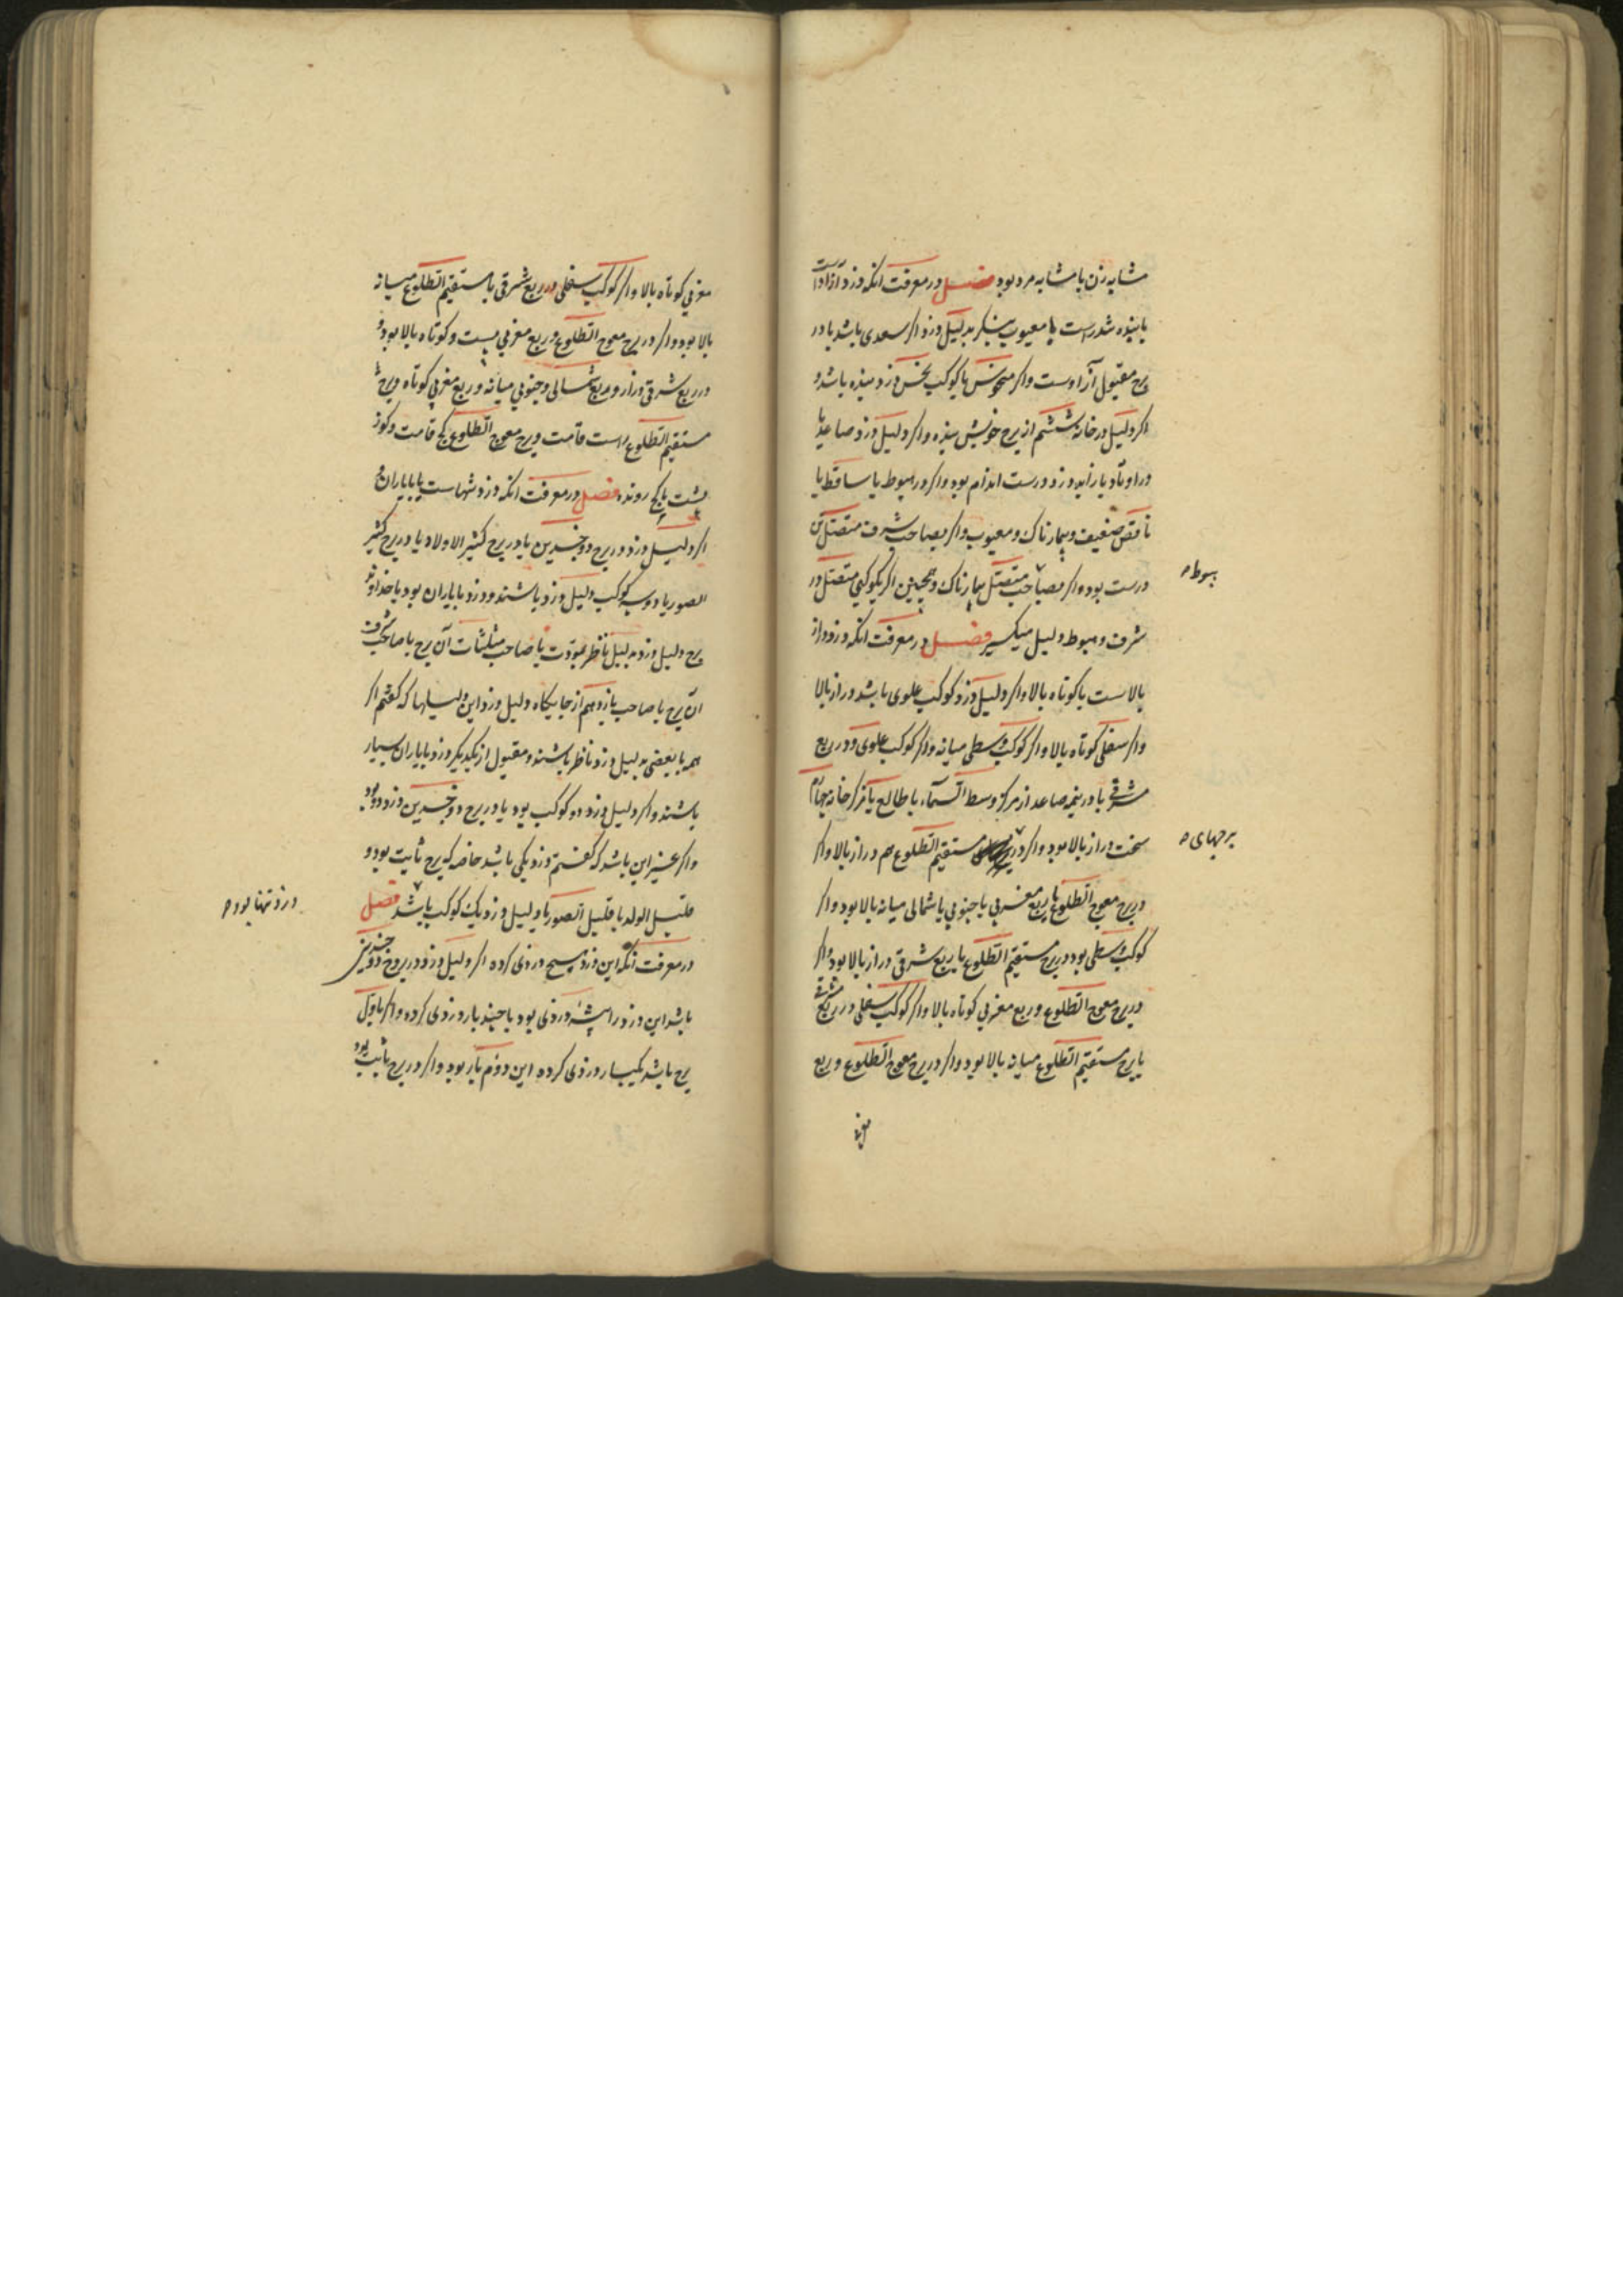 مشابه زن یا مشابه مرد بود فصل در معرفت آنکه دزد آزاد است
یا بنده تندرست یا معیوب بنگر بدلیل دزد اکر سعدی باشد یا در
برج مقبول آزادست واکر منحوس یا کوکب نحس دزد بنده باشد و
اکر دلیل در خانهٔ ششم از برج خویش بنده واکر دلیل دزد صاعد یا
در اوتاد یا زاید دزد درست اندام بود واکر در هبوط یا ساقط یا
ناقص ضعیف و بیمارناک و معیوب واکر بصاحب شرف متصل آن
درست بود واکر بصاحب متصل بیمارناک و همچنین اکر بکوکبی متصل در
هبوط
شرف و هبوط دلیل میکیر فصل در معرفت آنکه دزد دراز
بالاست یا کوتاه بالا واکر دلیل دزد کوکب علوی باشد دراز بالا
واکر سفلی کوتاه بالا واکر کوکب وسطی میانه واکر کوکب علوی و در ربع
مشرقی یا در نیمه صاعد از مرکز وسط السماء یا طالع یا مرکز خانه چهارم
سخت دراز بالا بود واکر در مستقیم الطلوع هم دراز بالا واکر
برجهای
در برج معوج الطلوع یا ربع مغربی یا جنوبی یا شمالی میانه بالا بود واکر
کوکب وسطی بود در برج مستقیم الطلوع یا ربع شرقی دراز بالا بود واکر
در برج معوج الطلوع و ربع مغربی کوتاه بالا واکر کوکب سفلی در ربع مشرقی
یا برج مستقیم الطلوع میانه بالا بود واکر در برج معوج الطلوع و ربع
مغربی
مغربی کوتاه بالا واکر کوکب سفلی در ربع شرقی یا مستقیم الطلوع میانه
بالا بود واکر در برج معوج الطلوع و ربع مغربی پست و کوتاه بالا بود و
در ربع شرقی دراز و بربع شمالی و جنوبی میانه و ربع مغربی کوتاه و برج
مستقیم الطلوع راست قامت و برج معوج الطلوع کج قامت و کوز
پشت یا کج رونده فصل در معرفت آنکه دزد تنهاست یا با یاران
اکر دلیل دزد در برج ذو جسدین یا در برج کثیر الاولاد یا در برج کثیر
الصور یا دو سه کوکب دلیل دزد باشند دزد با یاران بود یا خداوند
برج دلیل دزد بدلیل ناظر بمودت یا صاحب مثلثات آن برج یا صاحب شرف
آن برج یا صاحب یازدهم از جایکاه دلیل دزد این دلیلها که کفتم اکر
همه یا بعضی بدلیل دزد ناظر باشند و مقبول از یکدیکر دزد با یاران بسیار
باشند واکر دلیل دزد دو کوکب بود یا در برج ذو جسدین دزد دو بود
واکر غیر این باشد که کفتم دزد یکی باشد خاصه که برج ثابت بود و
قلیل الولد یا قلیل الصور یا دلیل دزد یک کوکب باشد فصل
دزد تنها بود
در معرفت آنکه این دزد هیچ دزدی کرده اکر دلیل دزد در بروج ذو جسدین
باشد این دزد را پیشه دزدی بود یا چند بار دزدی کرده واکر باول
برج باشد یکبار دزدی کرده این دوم بار بود واکر در برج ثابت بود